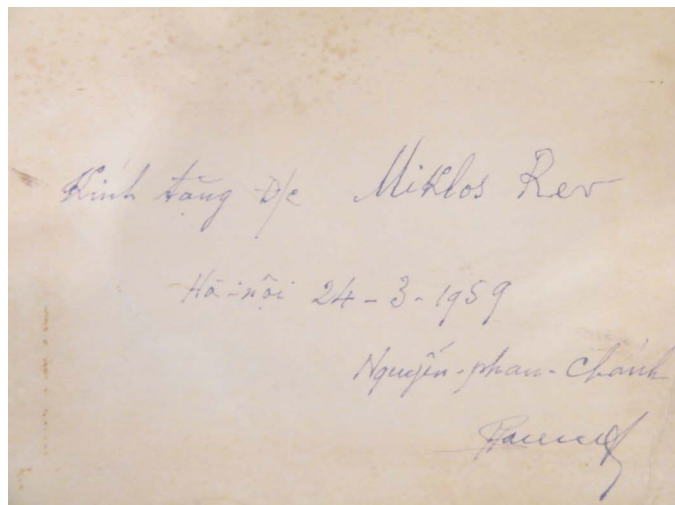 Kính tặng Đ/c Miklos Rev
Hà-nội 24-3-1959
Nguyễn-phan-Chánh